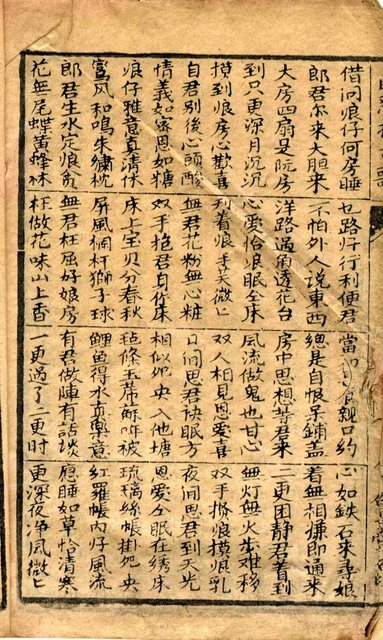 借问娘仔何房睡 乜路好行利便君 當初有親口約 心如鉄石來尋娘
郎君尔来大胆来 不怕外人說東西 總是自恨呆鋪盖 着無相嫌即通來
大房四扇是阮房 洋路過角透花台 房中思想等君來 二更困静君着到
到只更深月沉沉 心愛怡娘眠仝床 風流做鬼也甘心 無灯無火步难移
摸到娘房心歡喜 到着娘手笑微匕 双人相見恩愛喜 双手擠娘摸娘乳
自君别後心頭酸 無君花粉無心粧 日间思君袂眠方 夜间思君到天光
情義如蜜恩如糖 双手抱君自作床 相似央入他塘 恩愛仝眠在綉床
娘仔雅意真清休 床上宝贝分春秋 毡條玉蓆蘇哖被 琉璃絲帳掛央
風和鳴朱繡枕 屏風桐杆獅子球 鯉魚得水真樂意 紅羅帳内好風流
郎君生水定娘貪 無君枉屈好娘房 有君做陣有話談 愿睡如草怡清寒
花無尾蝶黄蜂林 枉做花味山上香 一更過了二更时 更深夜净風微匕